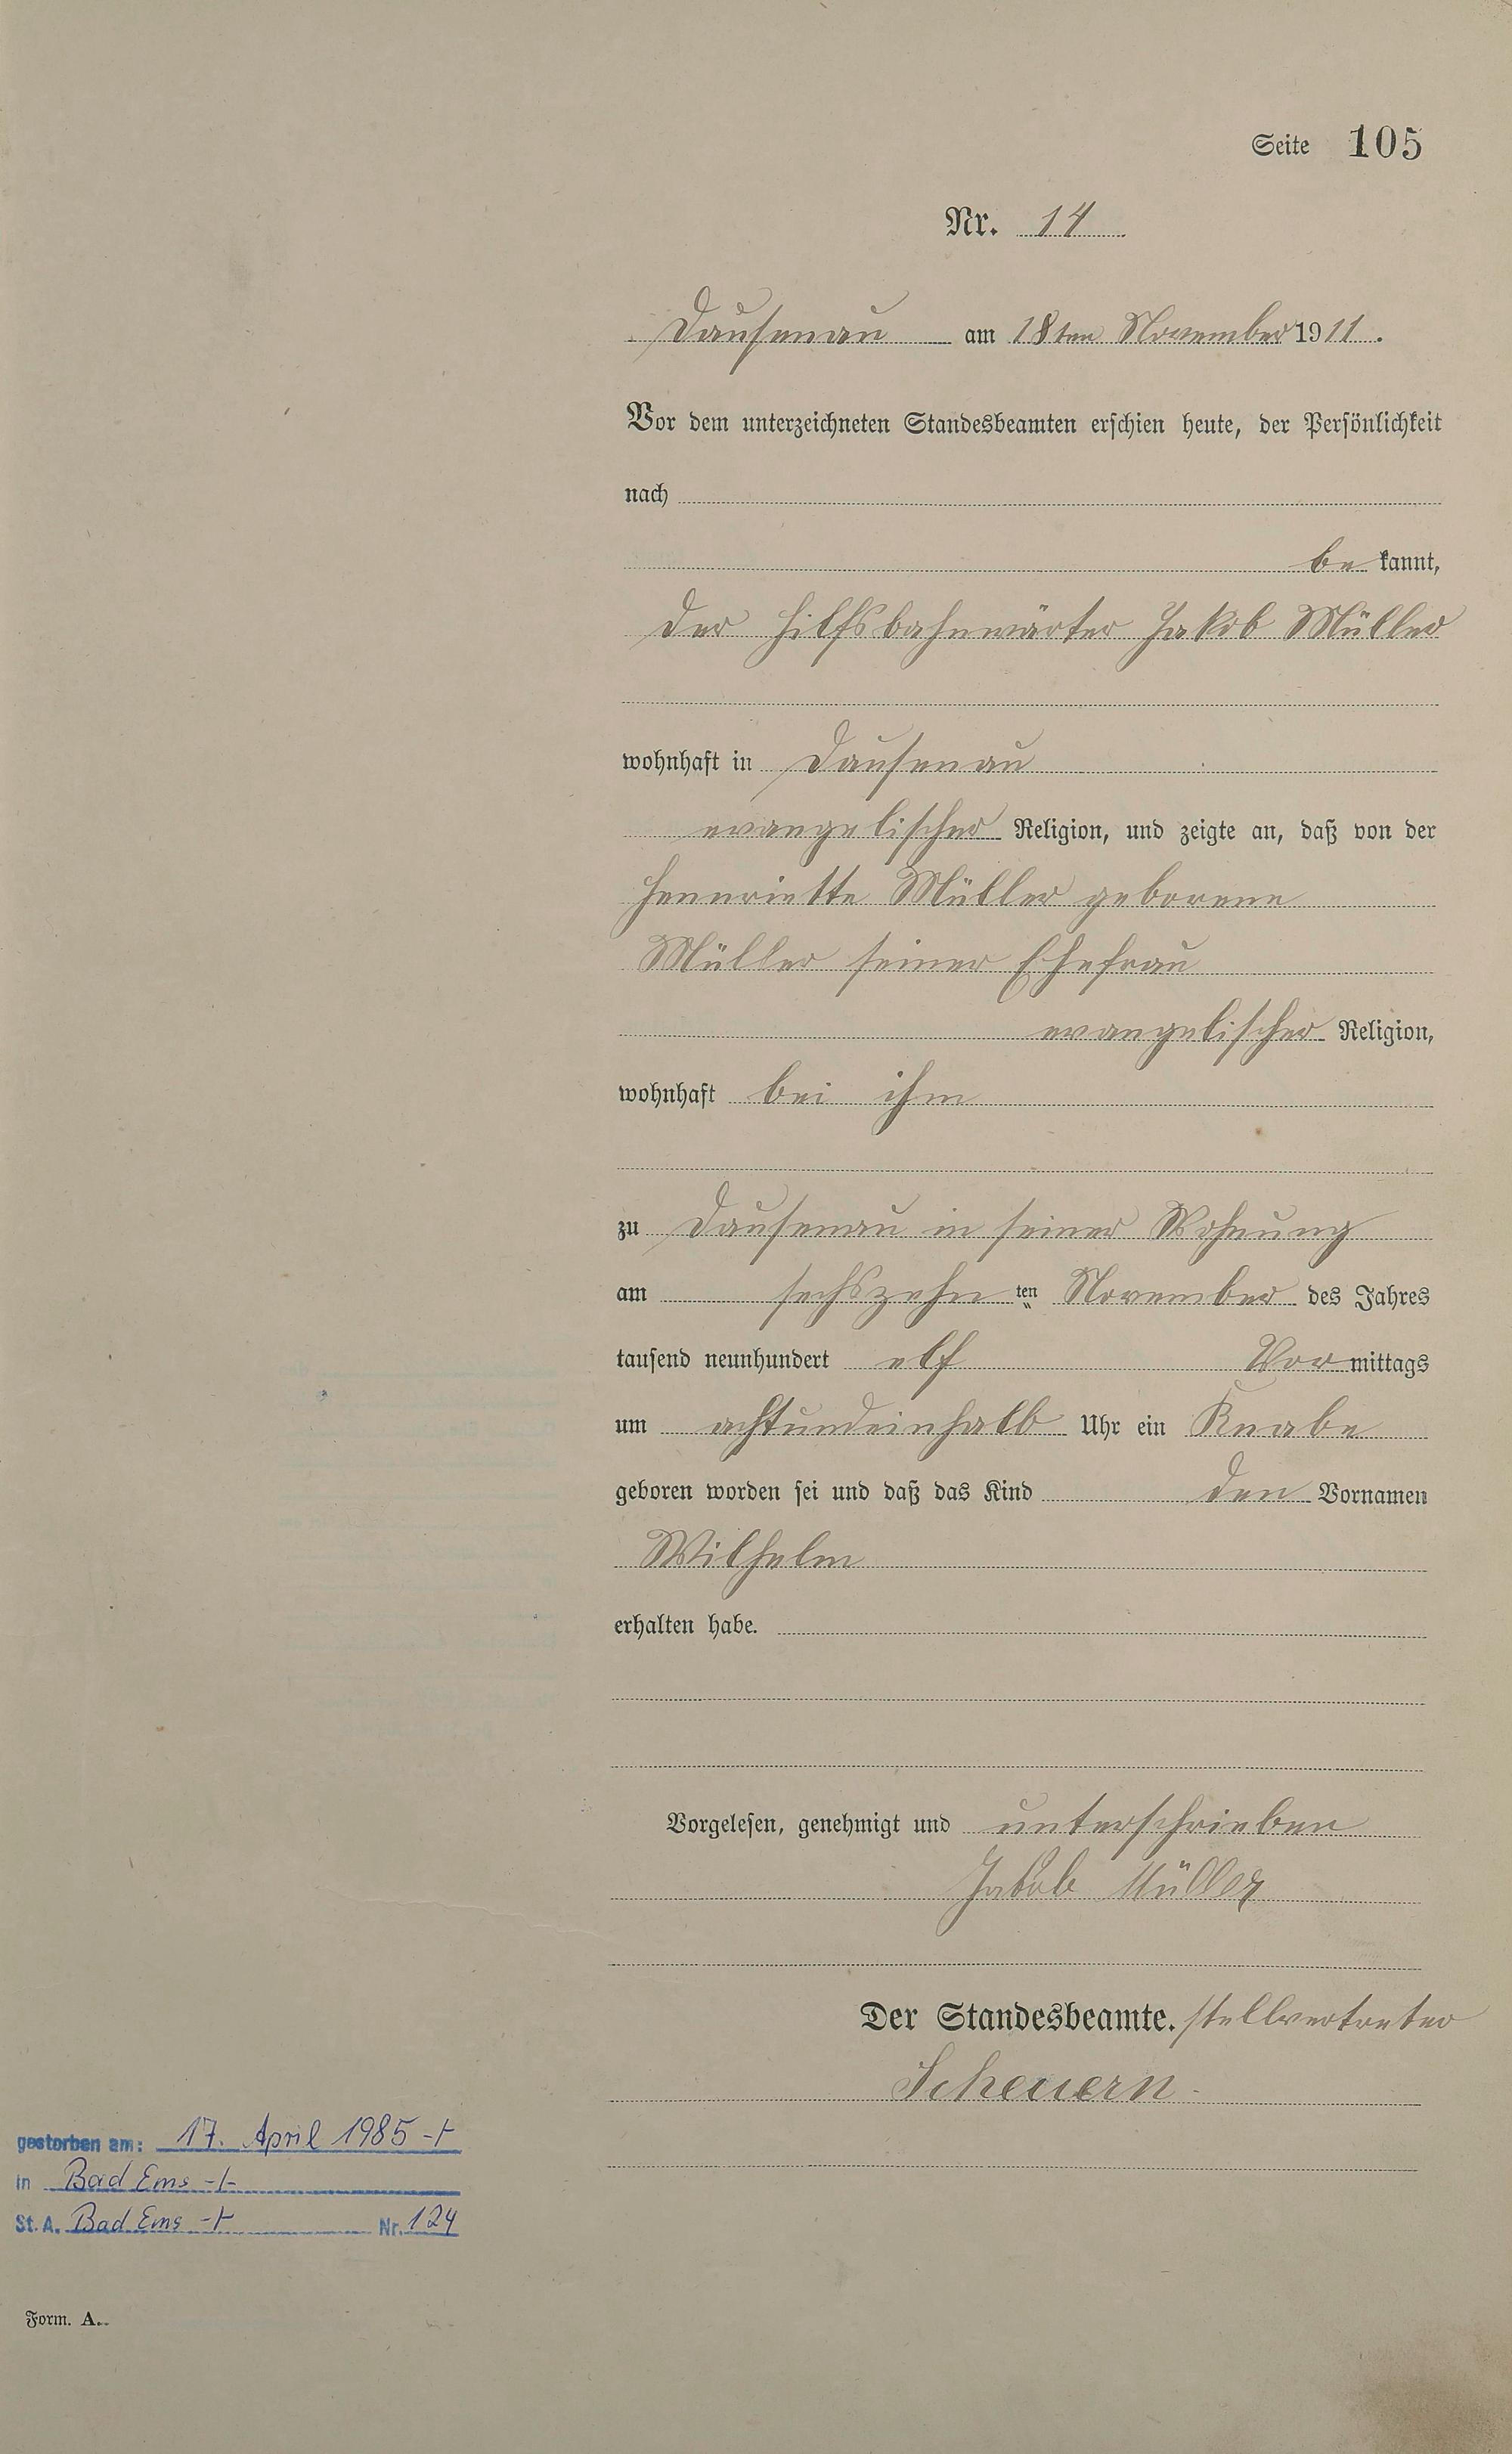 Seite 105
Nr. 14
Dausenau am 18ten November 1911.
Vor dem unterzeichneten Standesbeamten erschien heute, der Persönlichkeit
nach
be kannt,
der Hilfsbahnwärter Jakob Müller
wohnhaft in Dausenau
evangelischer Religion, und zeigte an, daß von der
Hennriette Müller geborene
Müller seiner Ehefrau
evangelischer Religion,
wohnhaft bei ihm
zu Dausenau in seiner Wohnung
am sechszehn ten November des Jahres
tausend neunhundert elf Vor mittags
um achtundeinhalb Uhr ein Knabe
geboren worden sei und daß das Kind den Vornamen
Wilhelm
erhalten habe.
Vorgelesen, genehmigt und unterschrieben
Jakob Müller
Der Standesbeamte. stellvertreter
Scheuern.
gestorben am: 17. April 1985 -+
in Bad Ems -+
St. A. Bad Ems -+ Nr. 124
Form. A.